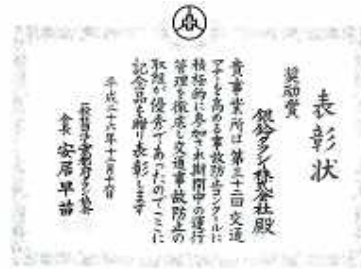 表彰状
奨励賞
銀鈴タクシー株式会社殿
貴事業所は第三十二回交通
マナーを高める事故防止コンクールに
積極的に参加され期間中の運行
管理を徹底し交通事故防止の
取組が優秀であったのでここに
記念品を贈り表彰します
平成二十六年十二月十六日
会長 安居早苗